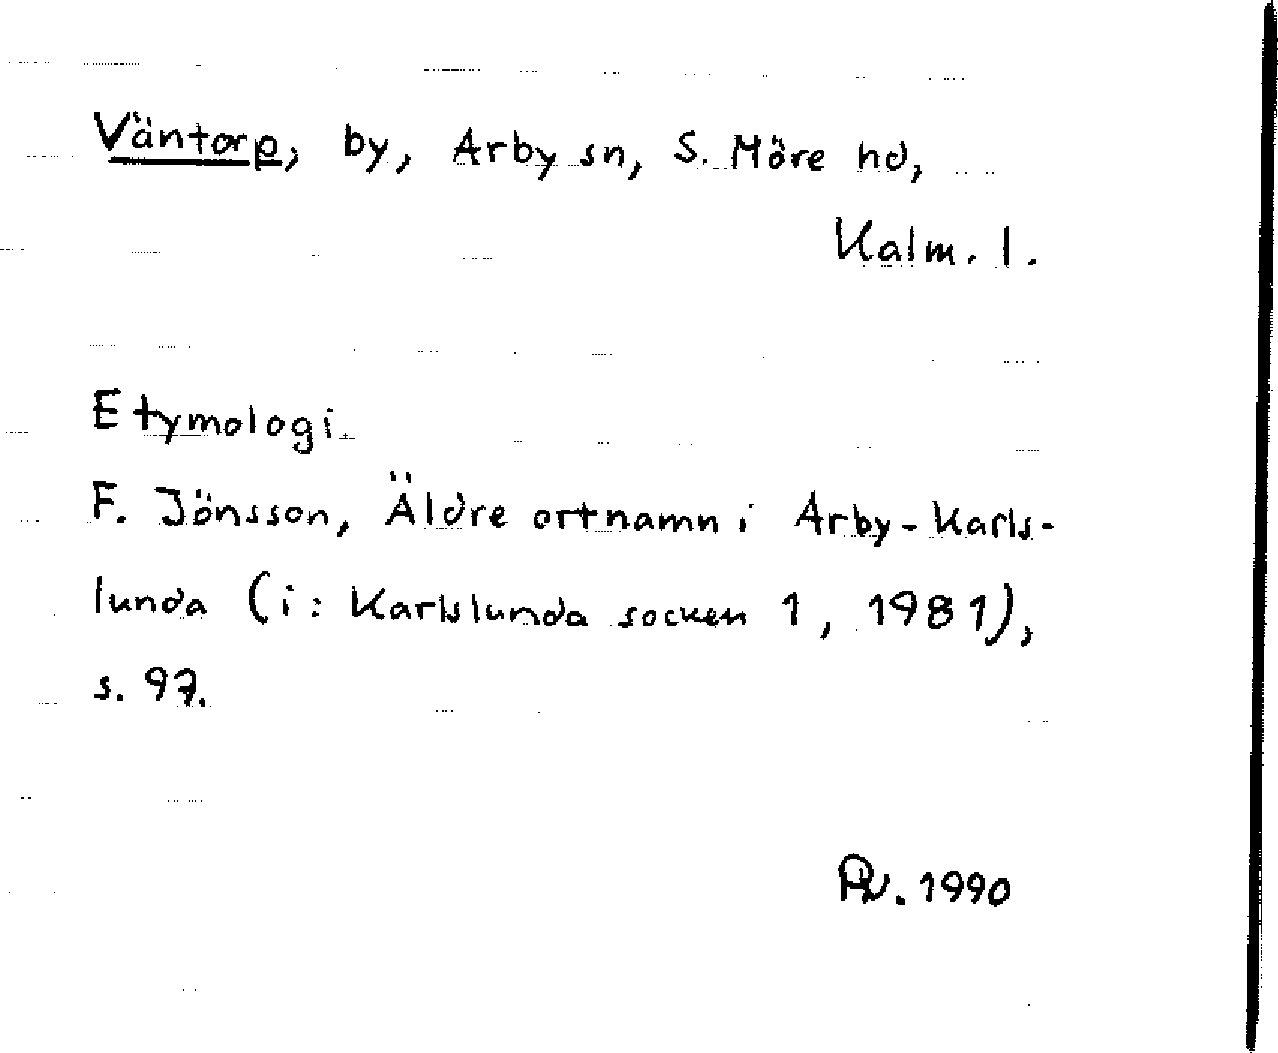 Väntorp, by, Arby sn, S. Möre hd,
Kalm. l.
Etymologi.
F. Jönsson, Äldre ortnamn i Arby-Karls-
lunda (i: Karlslunda socken 1, 1981),
s. 97.
PV. 1990